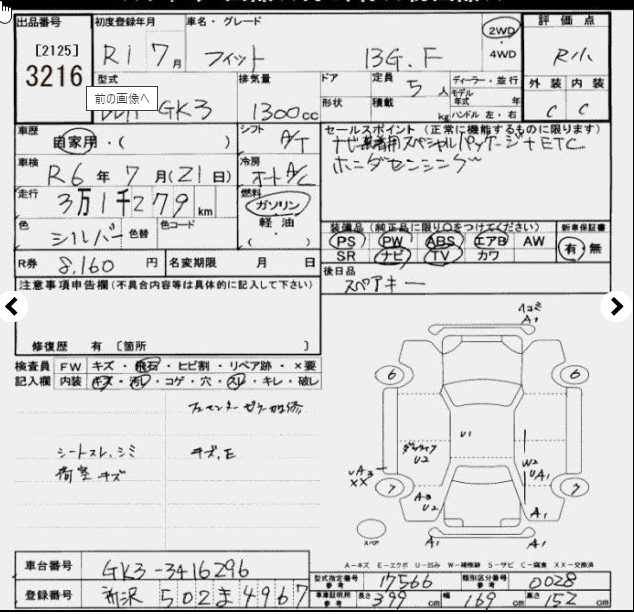 出品番号
[2125]
3216
初度登録年月
R1 7月
車名・グレード
フィット 13G.F
2WD
・
4WD
評価点
R小
外装 内装
C C
型式
GK3
前の画像へ
排気量
1300cc
ドア
形状
定員
5人
積載
kg
ディーラー・並行
モデル年式 年
ハンドル 左・右
車歴
自家用・( )
シフト
A/T
車検
R6年7月(21日)
冷房
オートA/C
走行
3万1千279km
燃料
ガソリン
・
軽油
・
( )
色
シルバー
色替
色コード
R券 8,160円
名変期限 月 日
セールスポイント (正常に機能するものに限ります)
ナビ装着用スペシャルパッケージ+ETC
ホンダセンシング
装備品 (純正品に限り○をつけてください)
PS PW ABS エアB AW
SR ナビ TV カワ
新車保証書
有 無
後日品
スペアキー
注意事項申告欄 (不具合内容等は具体的に記入して下さい)
修復歴 有 〔箇所 〕
検査員記入欄
FW キズ・飛石・ヒビ割・リペア跡・×要
内装 キズ・汚レ・コゲ・穴・スレ・キレ・破レ
シートスレ、シミ
荷室キズ
キズ、E
ヘコミ
A1
6 6
U1
U2
W2
UA1
UA3
XX
7 7
A3
U2
A1
A1 A1
スペア
A−キズ E−エクボ U−凹み W−補修跡 S−サビ C−腐食 XX−交換済
車台番号 GK3-3416296
登録番号 所沢 502 ま 4967
型式指定番号 参考 17566
類別区分番号 参考 0028
車庫証明用 参考 長さ 399cm 幅 169cm 高さ 152cm